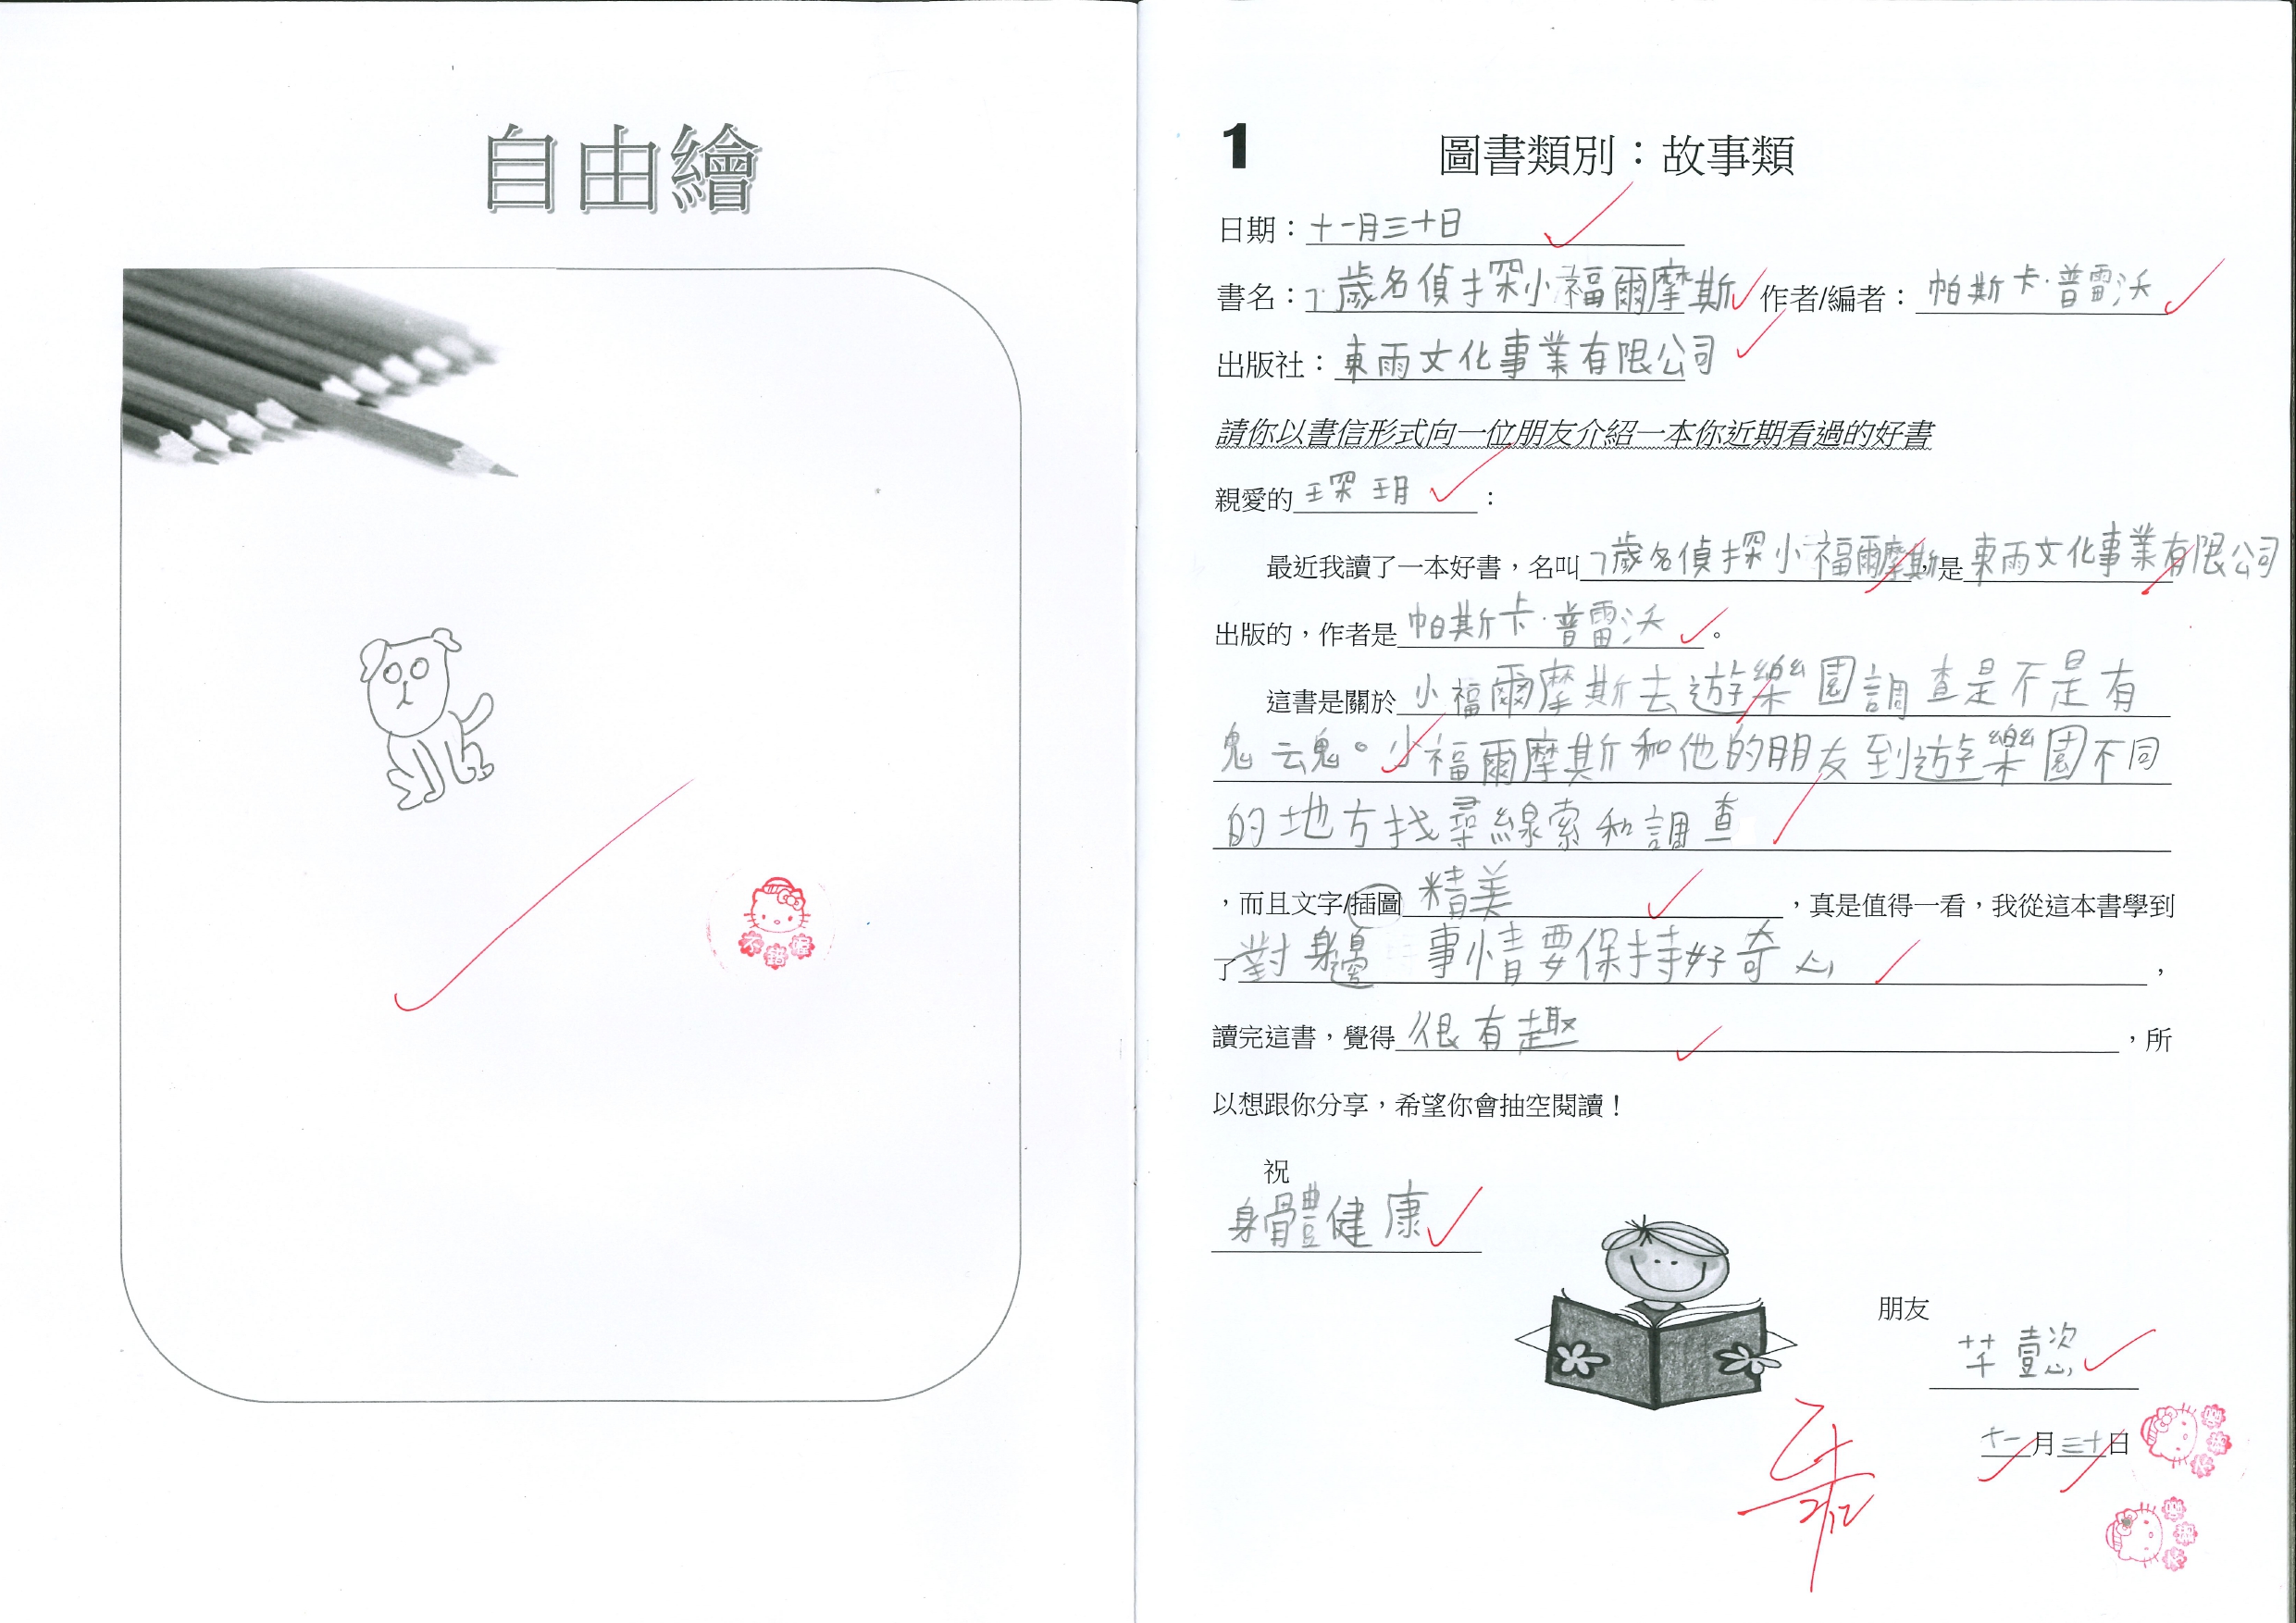 自由繪
不錯喔
1
圖書類別：故事類
日期：十一月三十日
書名：7歲名偵探小福爾摩斯 作者/編者：帕斯卡·普雷沃
出版社：東雨文化事業有限公司
請你以書信形式向一位朋友介紹一本你近期看過的好書
親愛的琛玥：
最近我讀了一本好書，名叫7歲名偵探小福爾摩斯，是東雨文化事業有限公司
出版的，作者是帕斯卡·普雷沃。
這書是關於小福爾摩斯去遊樂園調查是不是有
鬼魂。小福爾摩斯和他的朋友到遊樂園不同
的地方找尋線索和調查
，而且文字/插圖精美，真是值得一看，我從這本書學到
了對身邊事情要保持好奇心，
讀完這書，覺得很有趣，所
以想跟你分享，希望你會抽空閱讀！
祝
身體健康
朋友
芊懿
十一月三十日